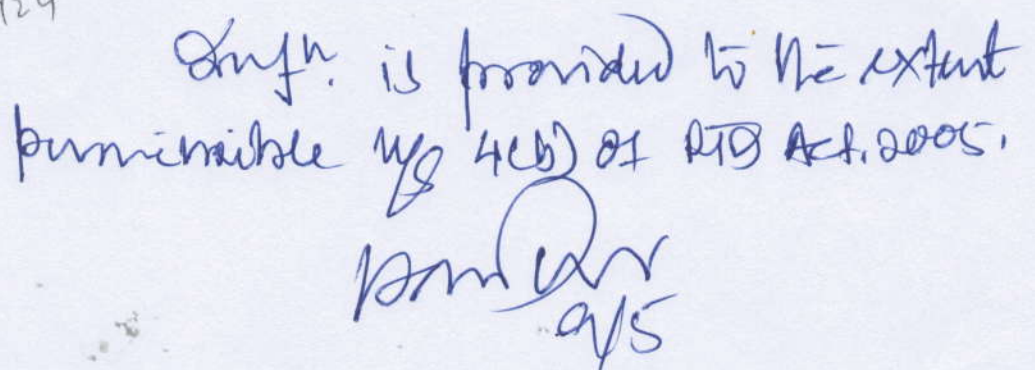 124
Infn. is provided to the extent
permissible u/s 4(b) of RTI Act. 2005.
9/5